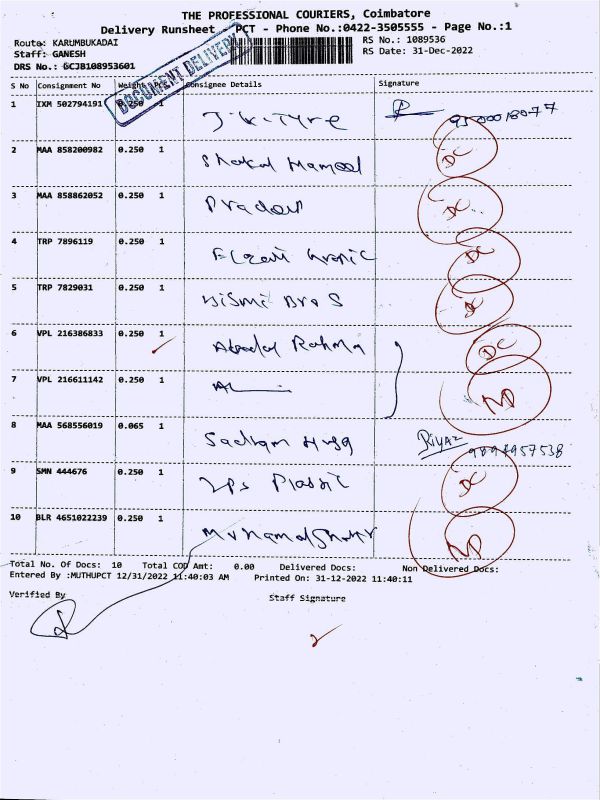 THE PROFESSIONAL COURIERS, Coimbatore
Delivery Runsheet - PCT - Phone No.:0422-3505555 - Page No.:1
Route: KARUMBUKADAI
RS No.: 1089536
Staff: GANESH
RS Date: 31-Dec-2022
DRS No.: GCJB108953601
DOCUMENT DELIVERY
S No Consignment No Weight Consignee Details Signature
1 IXM 502794191 0.250 1 J.K. Tyre
2 MAA 858200982 0.250 1 DC
3 MAA 858862052 0.250 1 DC
4 TRP 7896119 0.250 1 DC
5 TRP 7829031 0.250 1 Bismi Bros DC
6 VPL 216386833 0.250 1 Rahma DC
7 VPL 216611142 0.250 1 ND
8 MAA 568556019 0.065 1 Riyaz
9 SMN 444676 0.250 1 DC
10 BLR 4651022239 0.250 1 ND
Total No. Of Docs: 10 Total COD Amt: 0.00 Delivered Docs: Non Delivered Docs:
Entered By :MUTHUPCT 12/31/2022 11:40:03 AM Printed On: 31-12-2022 11:40:11
Verified By Staff Signature